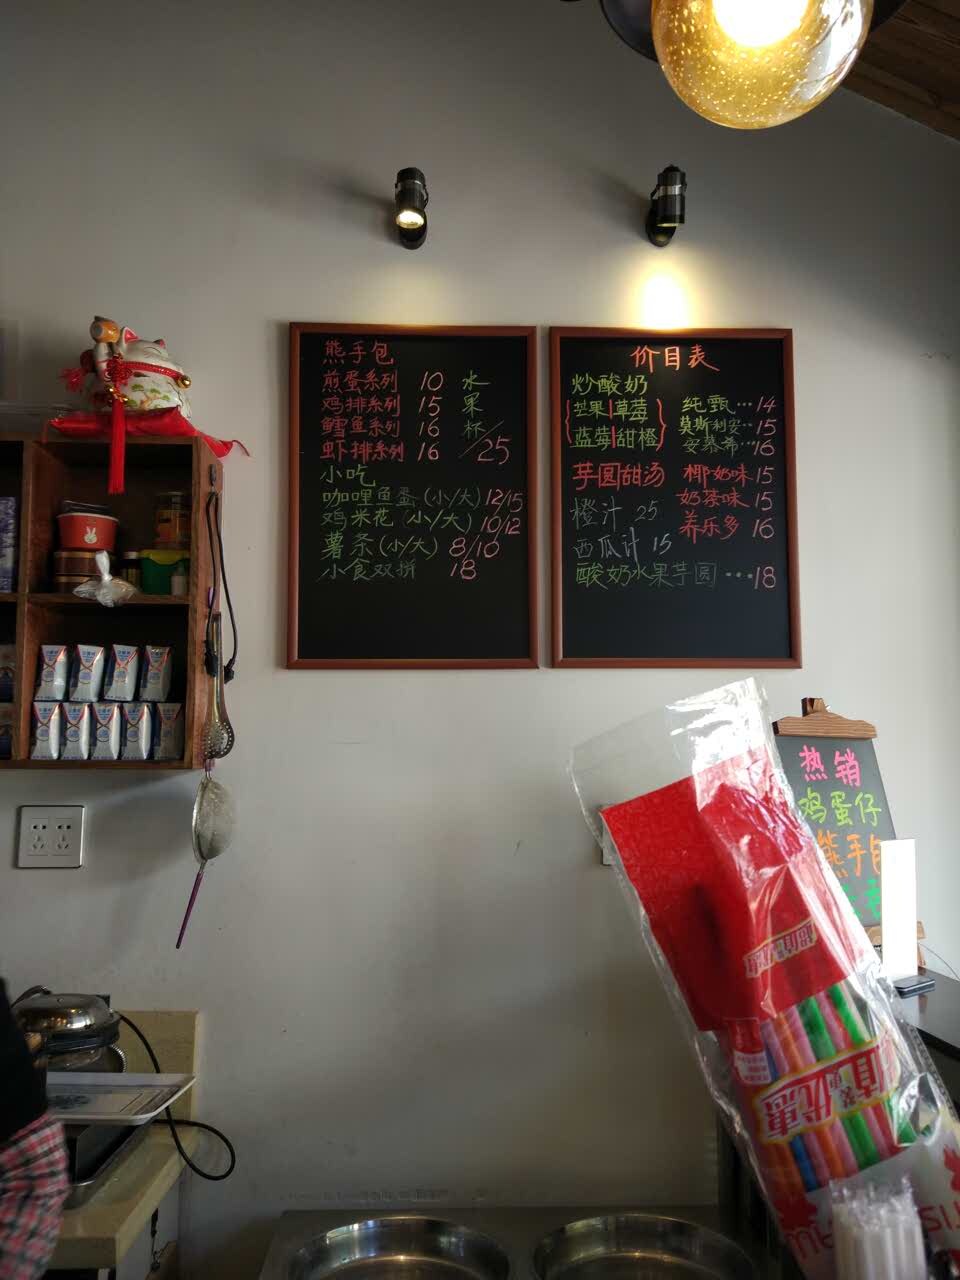 熊手包
煎蛋系列 10
鸡排系列 15
鳕鱼系列 16
虾排系列 16
水果杯/25
小吃
咖哩鱼蛋(小/大)12/15
鸡米花(小/大)10/12
薯条(小/大)8/10
小食双拼 18
价目表
炒酸奶
{芒果|草莓
蓝莓|甜橙}
纯甄…14
莫斯利安…15
安慕希…16
芋圆甜汤
椰奶味 15
奶茶味 15
养乐多 16
橙汁 25
西瓜汁 15
酸奶水果芋圆…18
热销
鸡蛋仔
熊手包
超值优惠
超值更优惠